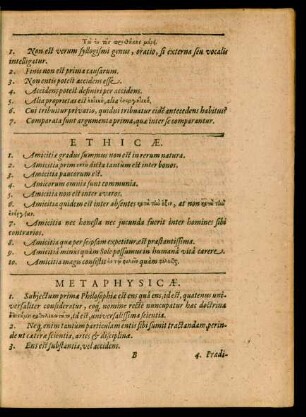 1. Non est verum syllogismi genus, oratio, si externa seu vocalis
intelligatur.
2. Finis non est prima causarum.
3. Non enti potest accidere esse.
4. Accidens potest definiri per accidens.
5. Alia proprietas est
6. Cui tribuitur privatio, quidni tribuatur eidē antecedens habitus?
7. Comparata sunt argumenta prima, qua inter se comparantur.
ETHICÆ.
1. Amicitia gradus summus non est in rerum natura.
2. Amicitia primò dicta tantùm est inter bonos.
3. Amicitia paucorum est.
4. Amicorum omnia sunt communia.
5. Amicitia non est inter avaros.
6. Amicitia quidem est inter absentes at non
7. Amicitia nec honesta nec jucunda fuerit inter homines sibi
contrarios.
8. Amicitia qua per se ipsam expetitur, est præstantissima.
9. Amicitiâ minùs quàm Sole possumus in humanâ vitâ carere.
10. Amicitia magis consistit ἐν τῷ φιλεῖν quàm φιλεῖσθ.
METAPHYSICÆ.
1. Subjectum primæ Philosophiæ est ens quâ ens, id est, quatenus uni-
versaliter consideratur, eoq, nomine rectè nuncupatur hæc doctrina
id est, universalissima scientia.
2. Neq, enim tantum particulam entis sibi sumit tractandam, perin-
de ut cæteræ scientiæ, artes & disciplinæ.
3. Ens est substantia, vel accidens.
B 4. Prædi-